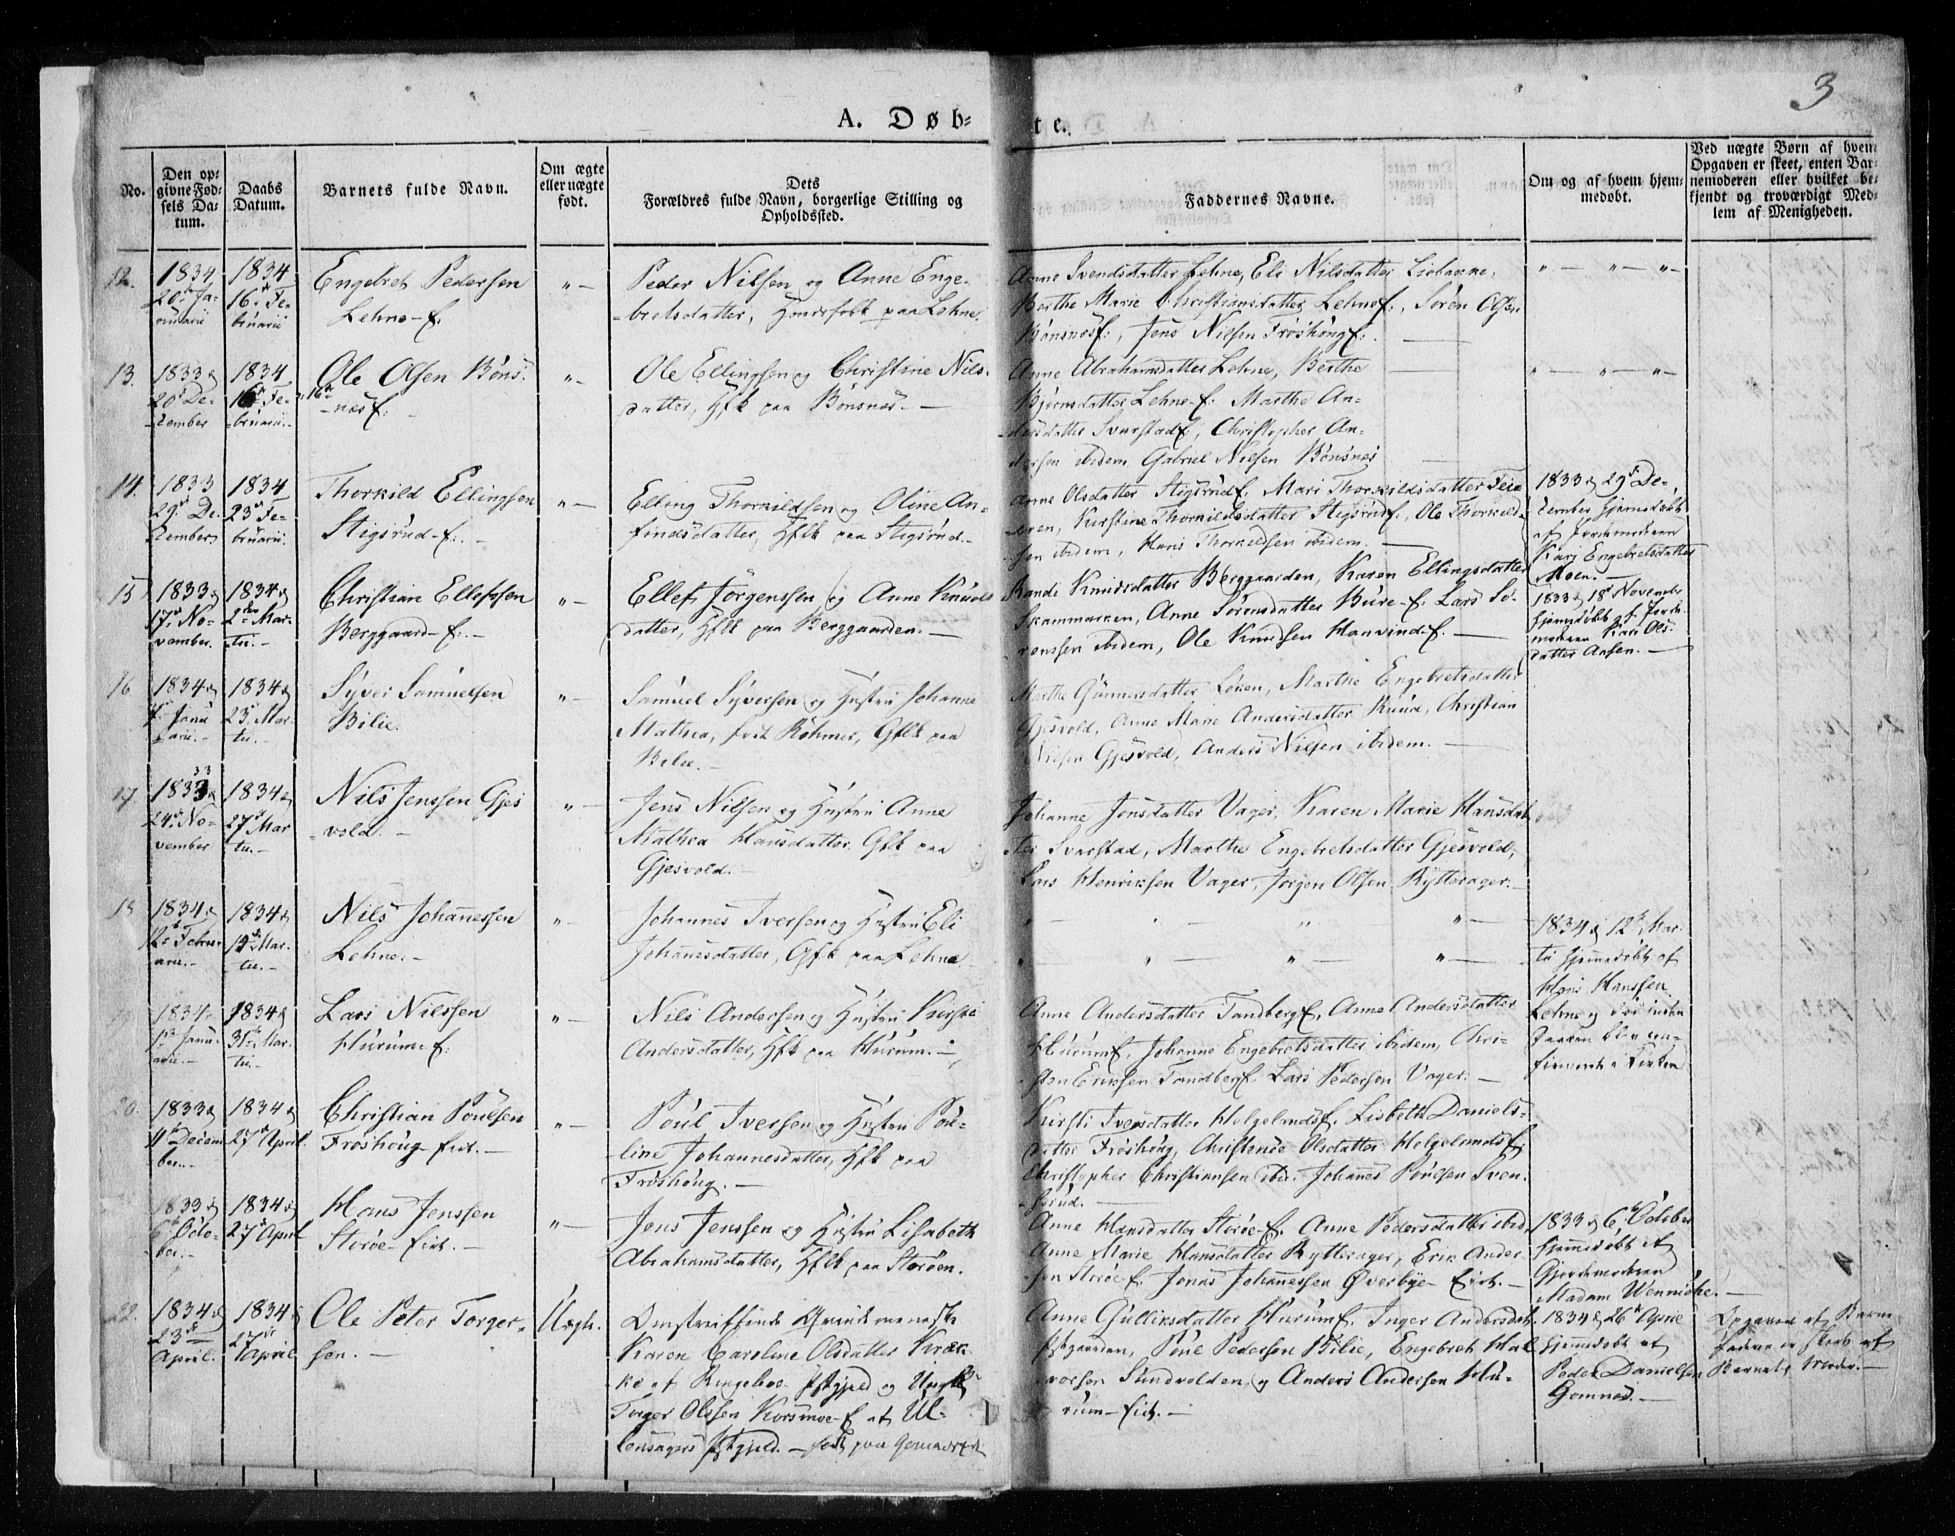 3
A. Døb-
te.
No.
Den op-
givne Fød-
sels Da-
tum.
Daabs
Datum.
Barnets fulde Navn.
Om ægte
eller uægte
født.
Dets
Forældres fulde Navn, borgerlige Stilling og
Opholdssted.
Faddernes Navne.
Om og af hvem hjem-
medøbt.
Ved uægte Børn af hvem
Opgaven er skeet, enten Bar-
nemoderen eller hvilket be-
kjendt og troværdigt Med-
lem af Menigheden.
12.
1834
20de Ja-
nuarii
1834
16de Fe-
bruarii
Engebret Pedersen
Lehne-E.
"—
Peder Nilsen og Anne Enge-
-bretsdatter, Huusfolk paa Lehne.
Anne Svendsdatter Lehne, Eli Nilsdatter
Berthe Marie Christiansdatter Lehne E., Søren Olsen
Bønsnæs E., Jens Nielsen Frøshoug E.
"— "— "—
13.
1833
20de De-
cember
1834
16de Fe-
bruarii
16de
Ole Olsen Bøns-
næs E.
"—
Ole Ellingsen og Christine Nils-
datter, Hflk paa Bønsnæs.—
Anne Abrahamsdatter Lehne, Berthe
Bjørnsdatter Lehne-E. Marthe An-
-dersdatter Svarstad E., Christopher An-
dersen ibidem, Gabriel Nilsen Bønsnæs
"— "— "—
14.
1833
29de De-
cember
1834
23de Fe-
bruarii
Thorkild Ellingsen
Stigsrud-E.
"—
Elling Thorkildsen og Oline An-
findsdatter, Hflk paa Stigsrud.
Anne Olsdatter Stigsrud E. Mari Thorkildsdatter Feie
-eren, Kirstine Thorkildsdatter Stigsrud E., Ole Thorkild-
sen ibidem, Hans Thorkildsen ibidem.
1833 29de De-
cember hjemmedøbt
af Jordemoderen
Kari Engebretsdatter
Moen.
15
1833
17de No-
vember.
1834
2den Mar-
tii.—
Christian Ellefssen
Berggaard-E.—
"—
Ellef Jørgenssen og Anne Knuds-
datter, Hflk paa Berggaarden.—
Rande Knudsdatter Berggaarden, Karen Ellingsdatter
Skammarken, Anne Sørensdatter Bure-E. Lars Sø-
renssen ibidem, Ole Knudsen Hanvind-E.
1833 18de November
hjemmedøbt af Jorde-
moderen Kari Ols-
datter Aasen.—
16
1834
Janu
arii.—
1834
23de Mar-
tii.
Syver Samuelsen
Bilie.
"—
Samuel Syversen og Hustru Johanne
Mathea, født Røhmer, Gflk paa
Bilie.—
Marthe Gunnersdatter Løken, Marthe Engebretsdatter
Gjesvold, Anne Marie Andersdatter Ruud, Christian
Nilsen Gjesvold, Anders Nilsen ibidem.—
17
1833
33
24de No-
vember
1834
27de Mar
tii.—
Nils Jenssen Gjes
-vold.—
"—
Jens Nilsen og Hustru Anne
Mathea Hansdatter, Gflk paa
Gjesvold.—
Johanne Jensdatter Vager, Karen Marie Hansdat
ter Svarstad, Marthe Engebretsdatter Gjesvold,
Lars Henriksen Vager, Jørgen Olsen Rytterager.—
18
1834
12te Febru-
arii.—
1834
Mar-
tii.—
Nils Johannessen
Lehne.—
"—
Johannes Iversen og Hustru Eli
Johannesdatter, Gflk paa Lehne
"— " " "—
"— "— "— "—
1834 12te Mar-
tii hjemmedøbt af
Hans Hanssen
Lehne og
19
1834
Janu-
arii.—
1834
31te Mar-
tii.—
Lars Nilssen
Hurum-E.
"—
Nils Andersen og Hustru Kirsti
Andersdatter, Hflk paa Hurum.—
Anne Andersdatter Tandberg E, Anne Andersdatter
Hurum E. Johanne Engebretsdatter ibidem, Chri-
sten Eriksen Tandberg E. Lars Pedersen Vager.—
20.
1833
11te Decem
ber.—
1834
27de April
Christian Poulsen
Frøshoug-Eiet.—
"—
Poul Iversen og Hustru Pou-
-line Johannesdatter, Hflk paa
Frøshoug.—
Kirsti Iversdatter Helgelands E. Lisbeth Daniels-
datter Frøshoug, Christense Olsdatter Helgelands E
Christopher Christiansen ibid. Johannes Poulsen Sven-
srud.—
1833
6te Octo-
ber.—
1834
27de April
Hans Jenssen
Storøe-Eiet.—
"—
Jens Jenssen og Hustru Lisabeth
Abrahamsdatter, Hflk paa Storøen.
Anne Hansdatter Storøe-E. Anne Pedersdatter ibid
Anne Marie Hansdatter Rytterager, Erik Ander-
sen Storøe E. Jonas Johannessen Øverbye-Eiet.—
1833 6te October
hjemmedøbt af
Gjordemoderen
Madam Wennicke.—
22.
1834
23de
April.
1834
27de
April
Ole Peter Torger-
sen.—
Uægte.
Omstreifende Qvindemenneske
Karen Caroline Olsdatter
af Ringeboe Pstgjeld og Ungk
Torger Olsen Korsmoe-E af Ul-
lensagers Pstgjeld.—født paa Gomnæs E
Anne Gulliksdatter Hurum E. Inger Andersdat.
Pstgaarden, Poul Pedersen Bilie, Engebret Hal
vorsen Sundvolden og Anders Andersen Hu-
rum-Eiet.—
1834 26de April
hjemmedøbt af
Peder Danielsen
Gomnæs.—
Opgaven af Barne
faderen er skeet af
Barnets Moder.—